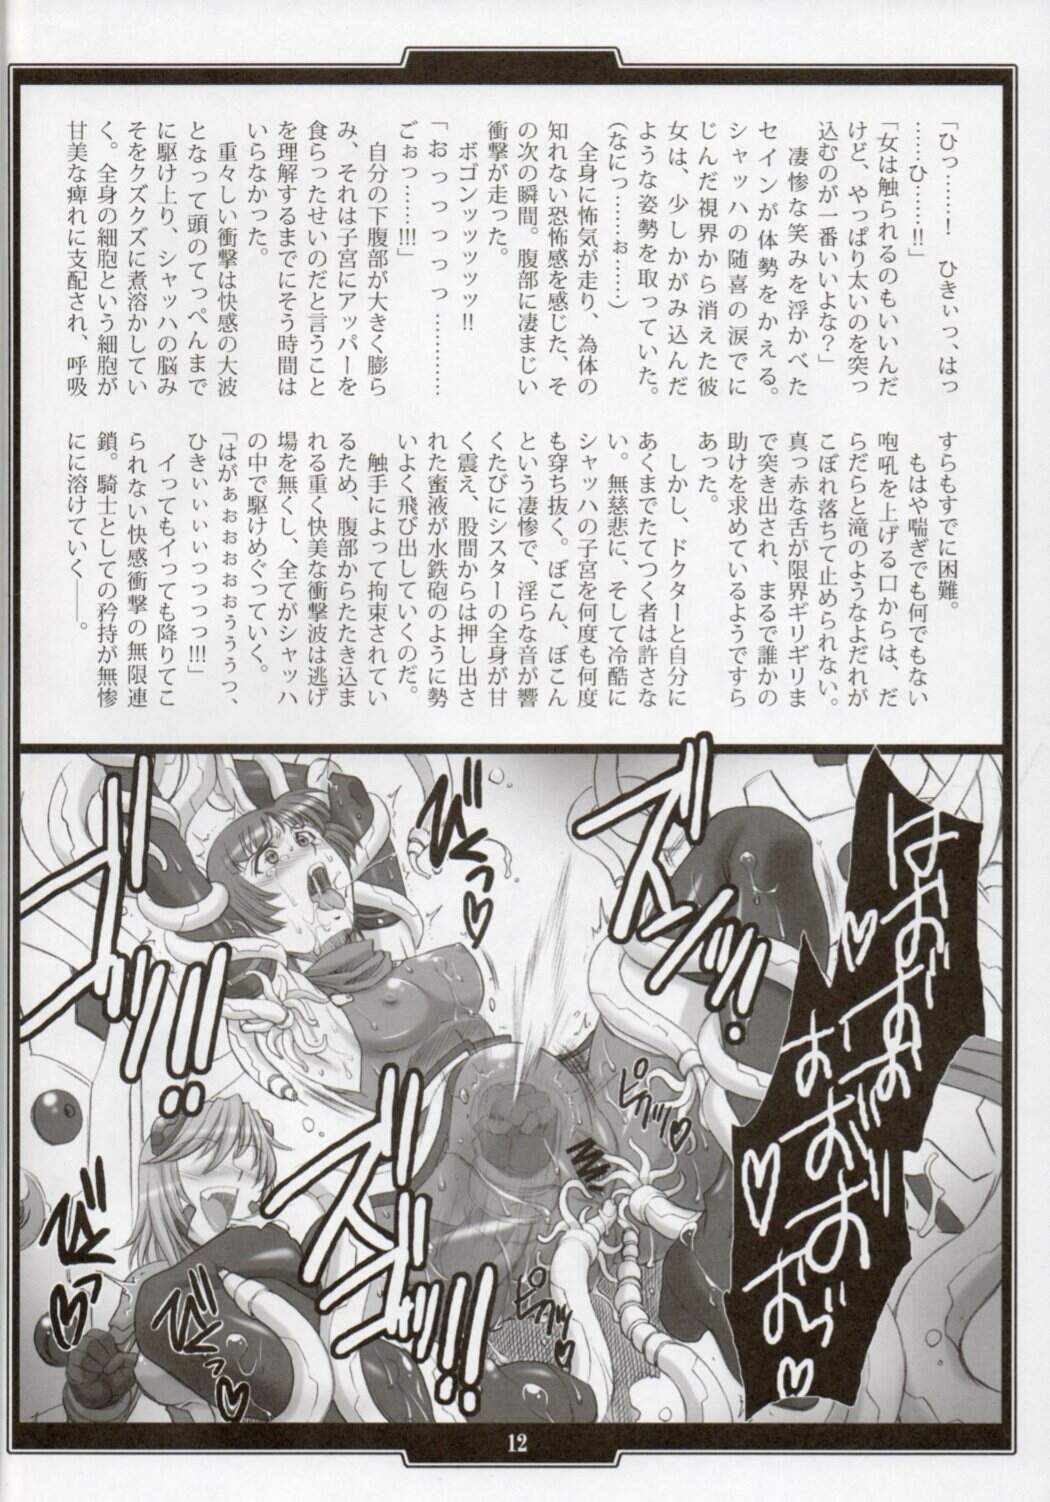 「ひっ……！　ひきぃっ、はっ
……ひ……!!」
「女は触られるのもいいんだ
けど、やっぱり太いのを突っ
込むのが一番いいよな？」
　凄惨な笑みを浮かべた
セインが体勢をかえる。
シャッハの随喜の涙でに
じんだ視界から消えた彼
女は、少しかがみ込んだ
ような姿勢を取っていた。
(なにっ……ぉ……)
　全身に怖気が走り、為体の
知れない恐怖感を感じた、そ
の次の瞬間。腹部に凄まじい
衝撃が走った。
　ボゴンッッッッ!!
「おっっっっっ…………
ごぉっ……!!!」
　自分の下腹部が大きく膨ら
み、それは子宮にアッパーを
食らったせいのだと言うこと
を理解するまでにそう時間は
いらなかった。
　重々しい衝撃は快感の大波
となって頭のてっぺんまで
に駆け上り、シャッハの脳み
そをクズクズに煮溶かしてい
く。全身の細胞という細胞が
甘美な痺れに支配され、呼吸
すらもすでに困難。
　もはや喘ぎでも何でもない
咆吼を上げる口からは、だ
らだらと滝のようなよだれが
こぼれ落ちて止められない。
真っ赤な舌が限界ギリギリま
で突き出され、まるで誰かの
助けを求めているようですら
あった。
　しかし、ドクターと自分に
あくまでたてつく者は許さな
い。無慈悲に、そして冷酷に
シャッハの子宮を何度も何度
も穿ち抜く。ぼこん、ぼこん
という凄惨で、淫らな音が響
くたびにシスターの全身が甘
く震え、股間からは押し出さ
れた蜜液が水鉄砲のように勢
いよく飛び出していくのだ。
　触手によって拘束されてい
るため、腹部からたたき込ま
れる重く快美な衝撃波は逃げ
場を無くし、全てがシャッハ
の中で駆けめぐっていく。
「はがぁぉぉぉぉぅぅぅっ、
ひきぃぃぃぃっっっっ!!!」
　イってもイっても降りてこ
られない快感衝撃の無限連
鎖。騎士としての矜持が無惨
にに溶けていく――。
ズンッ!!
ズンッ!!!
ズゴォッ!!!
びくっ♡
びくっ♡
びくっ♡
ピクッ♡
ピクッ♡
12